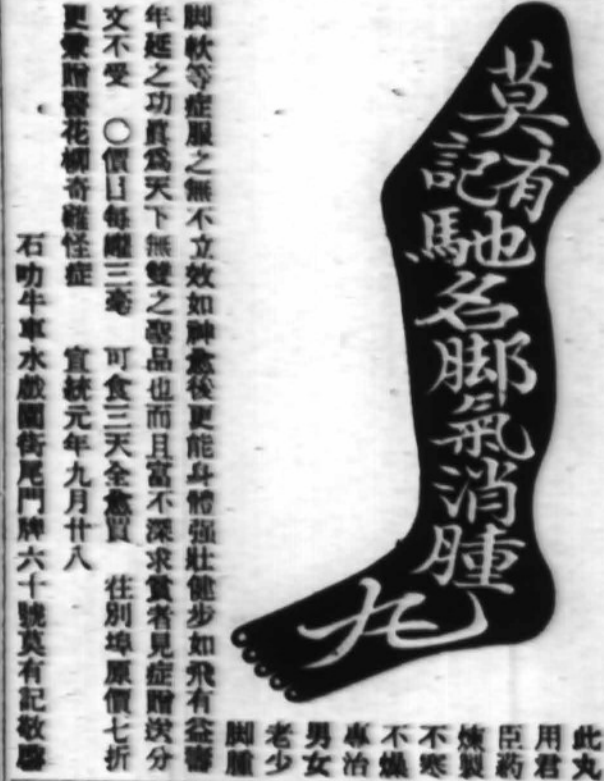 莫有記馳名脚氣消腫丸
此丸
用君
臣葯
煉製
不寒
不燥
專治
男女
老少
脚腫
脚軟等症服之無不立效如神愈後更能身體强壯健步如飛有益壽
年延之功眞爲天下無雙之聖品也而且富不深求貧者見症贈送分
文不受　〇價目每罐三毫　可食三天全愈買　往別埠原價七折
更兼贈醫花柳奇難怪症　宣統元年九月廿八
石叻牛車水戲園街尾門牌六十號莫有記敬啓